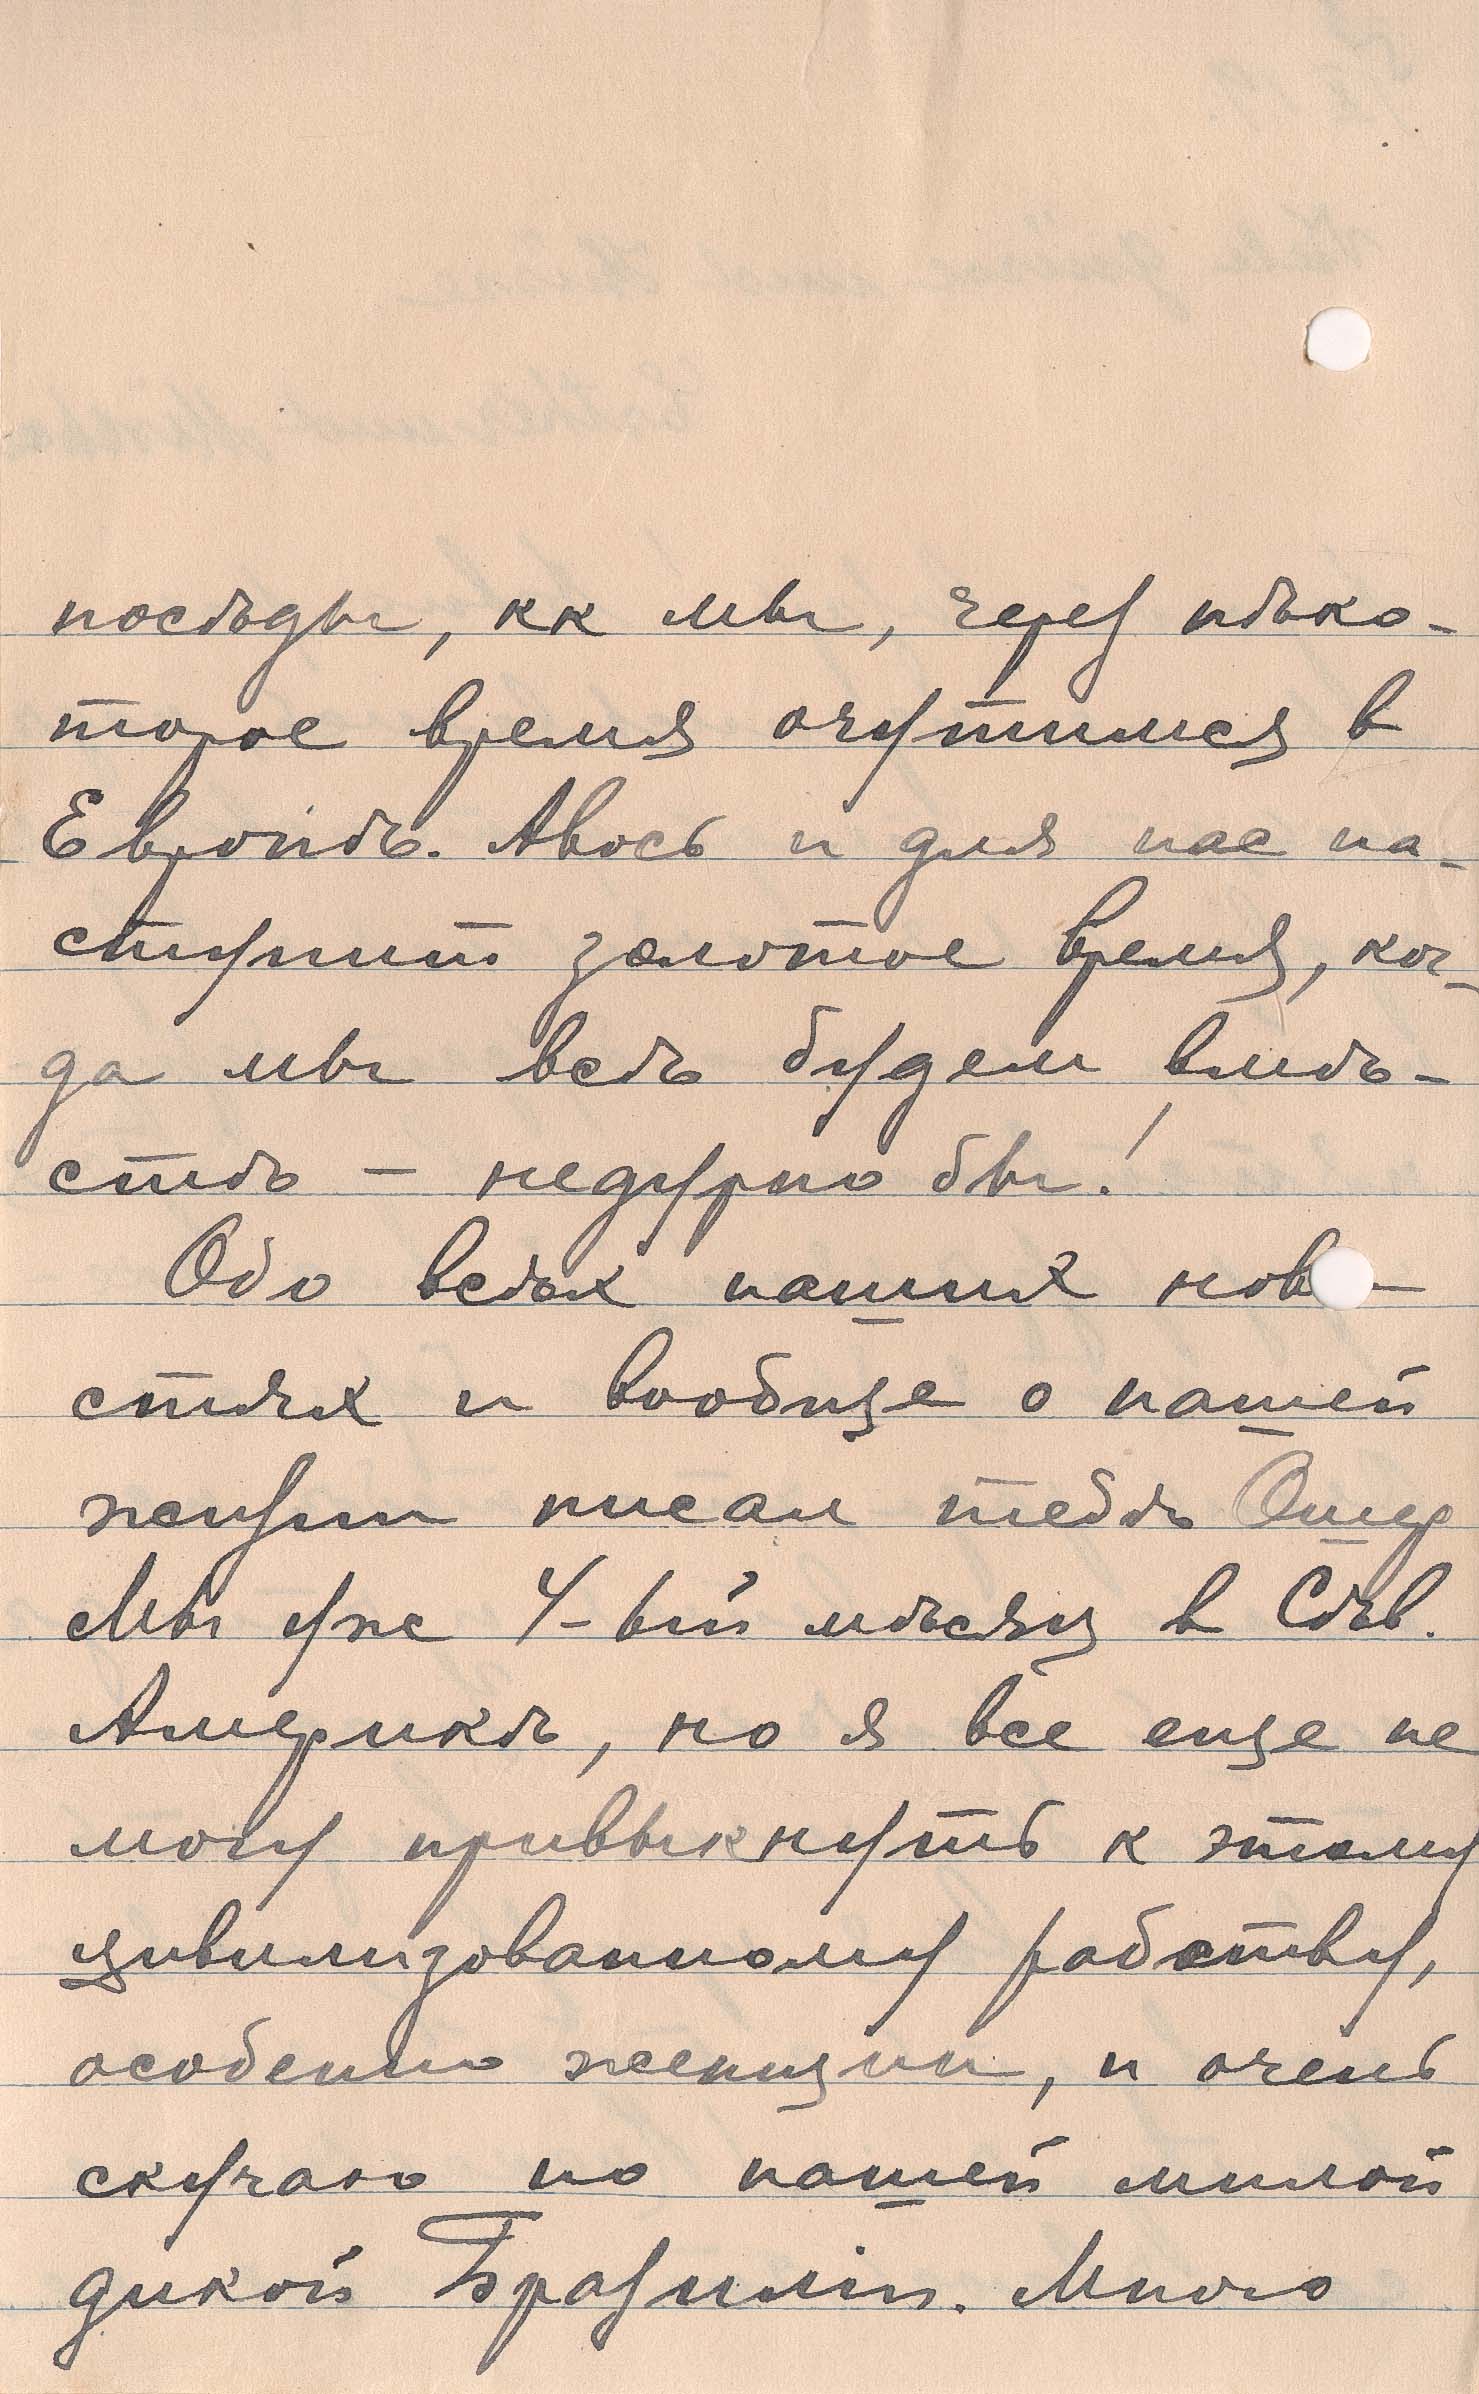 посѣды, кк мы, через нѣко-
торое время очутимся в
Европѣ. Авось и для нас на-
ступит золотое время, ког-
да мы всѣ будем вмѣ-
стѣ – недурно бы!
Обо всѣх наших нов –
стях и вообще о нашей
жизни писал тебѣ Ошер
Мы уже 4-ый мѣсяц в Сѣв.
Америкѣ, но я все еще не
могу привыкнуть к этому
цивилизованному рабству,
особенно женщин, и очень
скучаю по нашей милой
дикой Бразиліи. Много